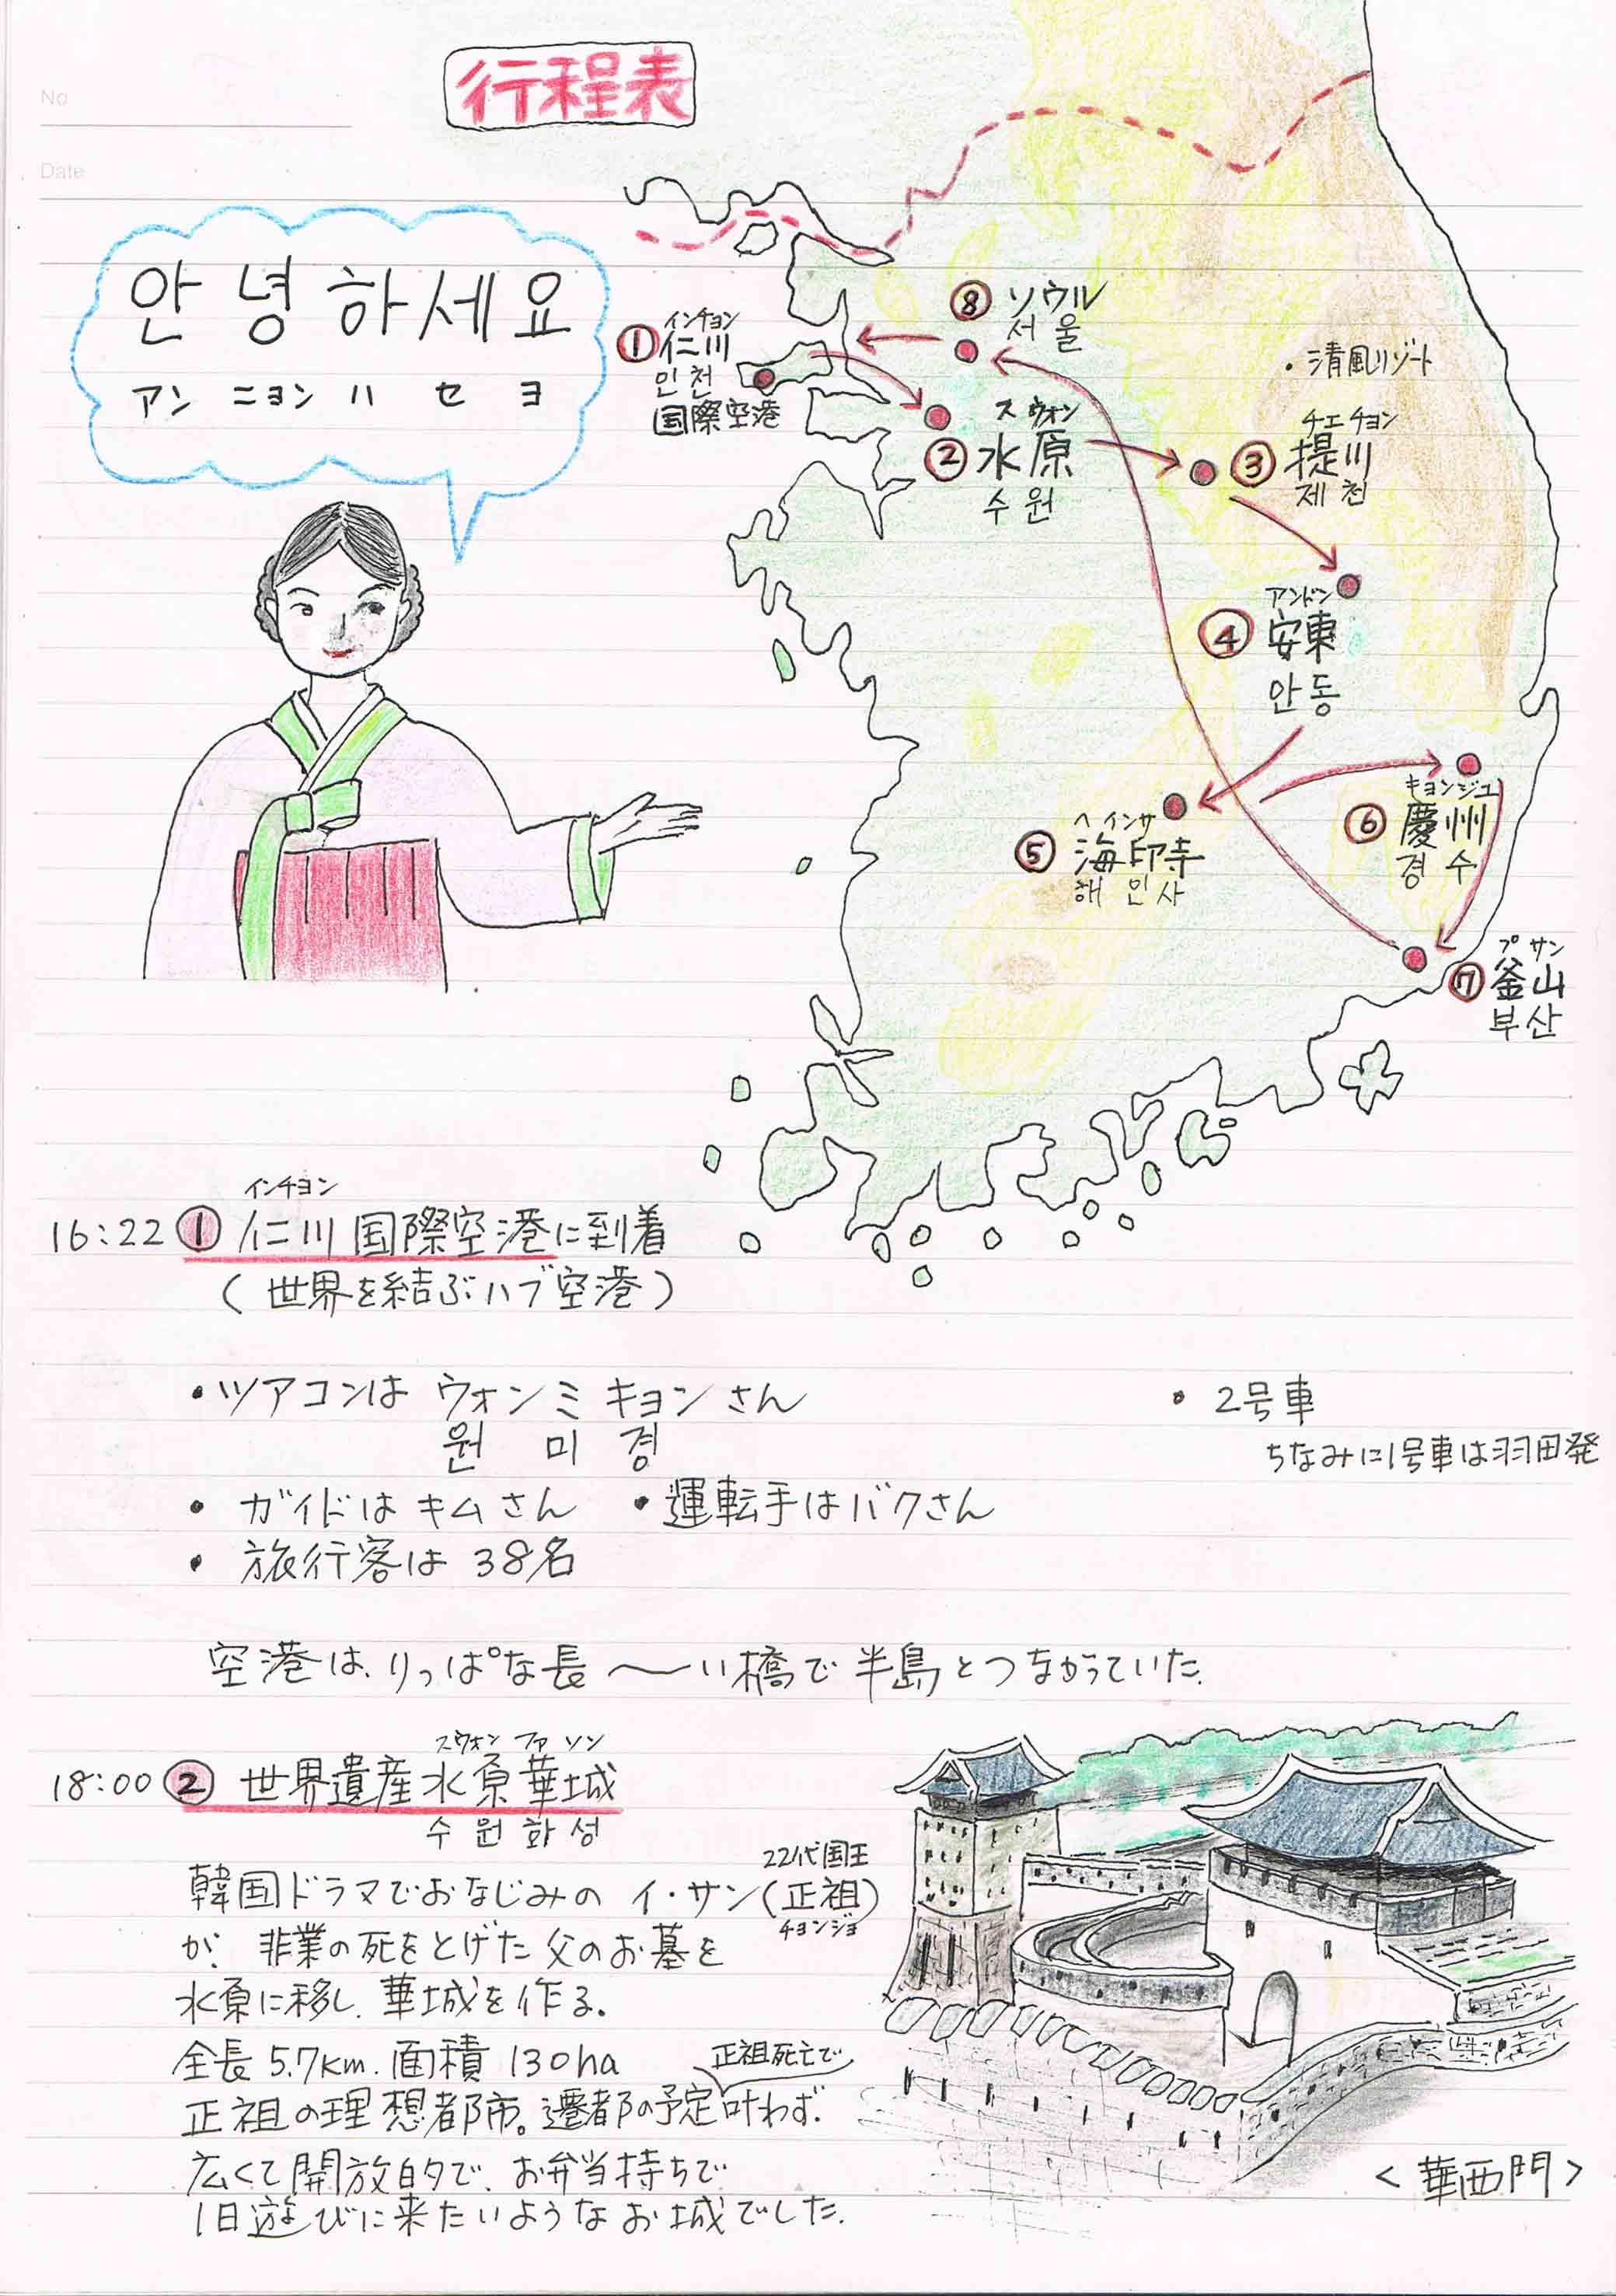 No
Date
行程表
안녕하세요
アンニョンハセヨ
① インチョン
仁川
인천
国際空港
⑧ ソウル
서울
・清風リゾート
スウォン
② 水原
수원
チエチョン
③ 提川
제천
アンドン
④ 安東
안동
ヘインサ
⑤ 海印寺
해인사
キョンジュ
⑥ 慶州
경수
プサン
⑦ 釜山
부산
インチョン
16:22 ① 仁川国際空港に到着
(世界を結ぶハブ空港)
・ツアコンは ウォンミキョンさん
원미경
・2号車
ちなみに1号車は羽田発
・ガイドはキムさん ・運転手はバクさん
・旅行客は 38名
空港は、りっぱな長〜い橋で半島とつながっていた。
スウォンファソン
18:00 ② 世界遺産水原華城
수원화성
22代国王
韓国ドラマでおなじみの イ・サン(正祖)
チョンジョ
が、非業の死をとげた父のお墓を
水原に移し、華城を作る。
全長5.7km. 面積130ha
正祖死亡で
正祖の理想都市。遷都の予定叶わず.
広くて開放的で、お弁当持ちで
1日遊びに来たいようなお城でした.
<華西門>